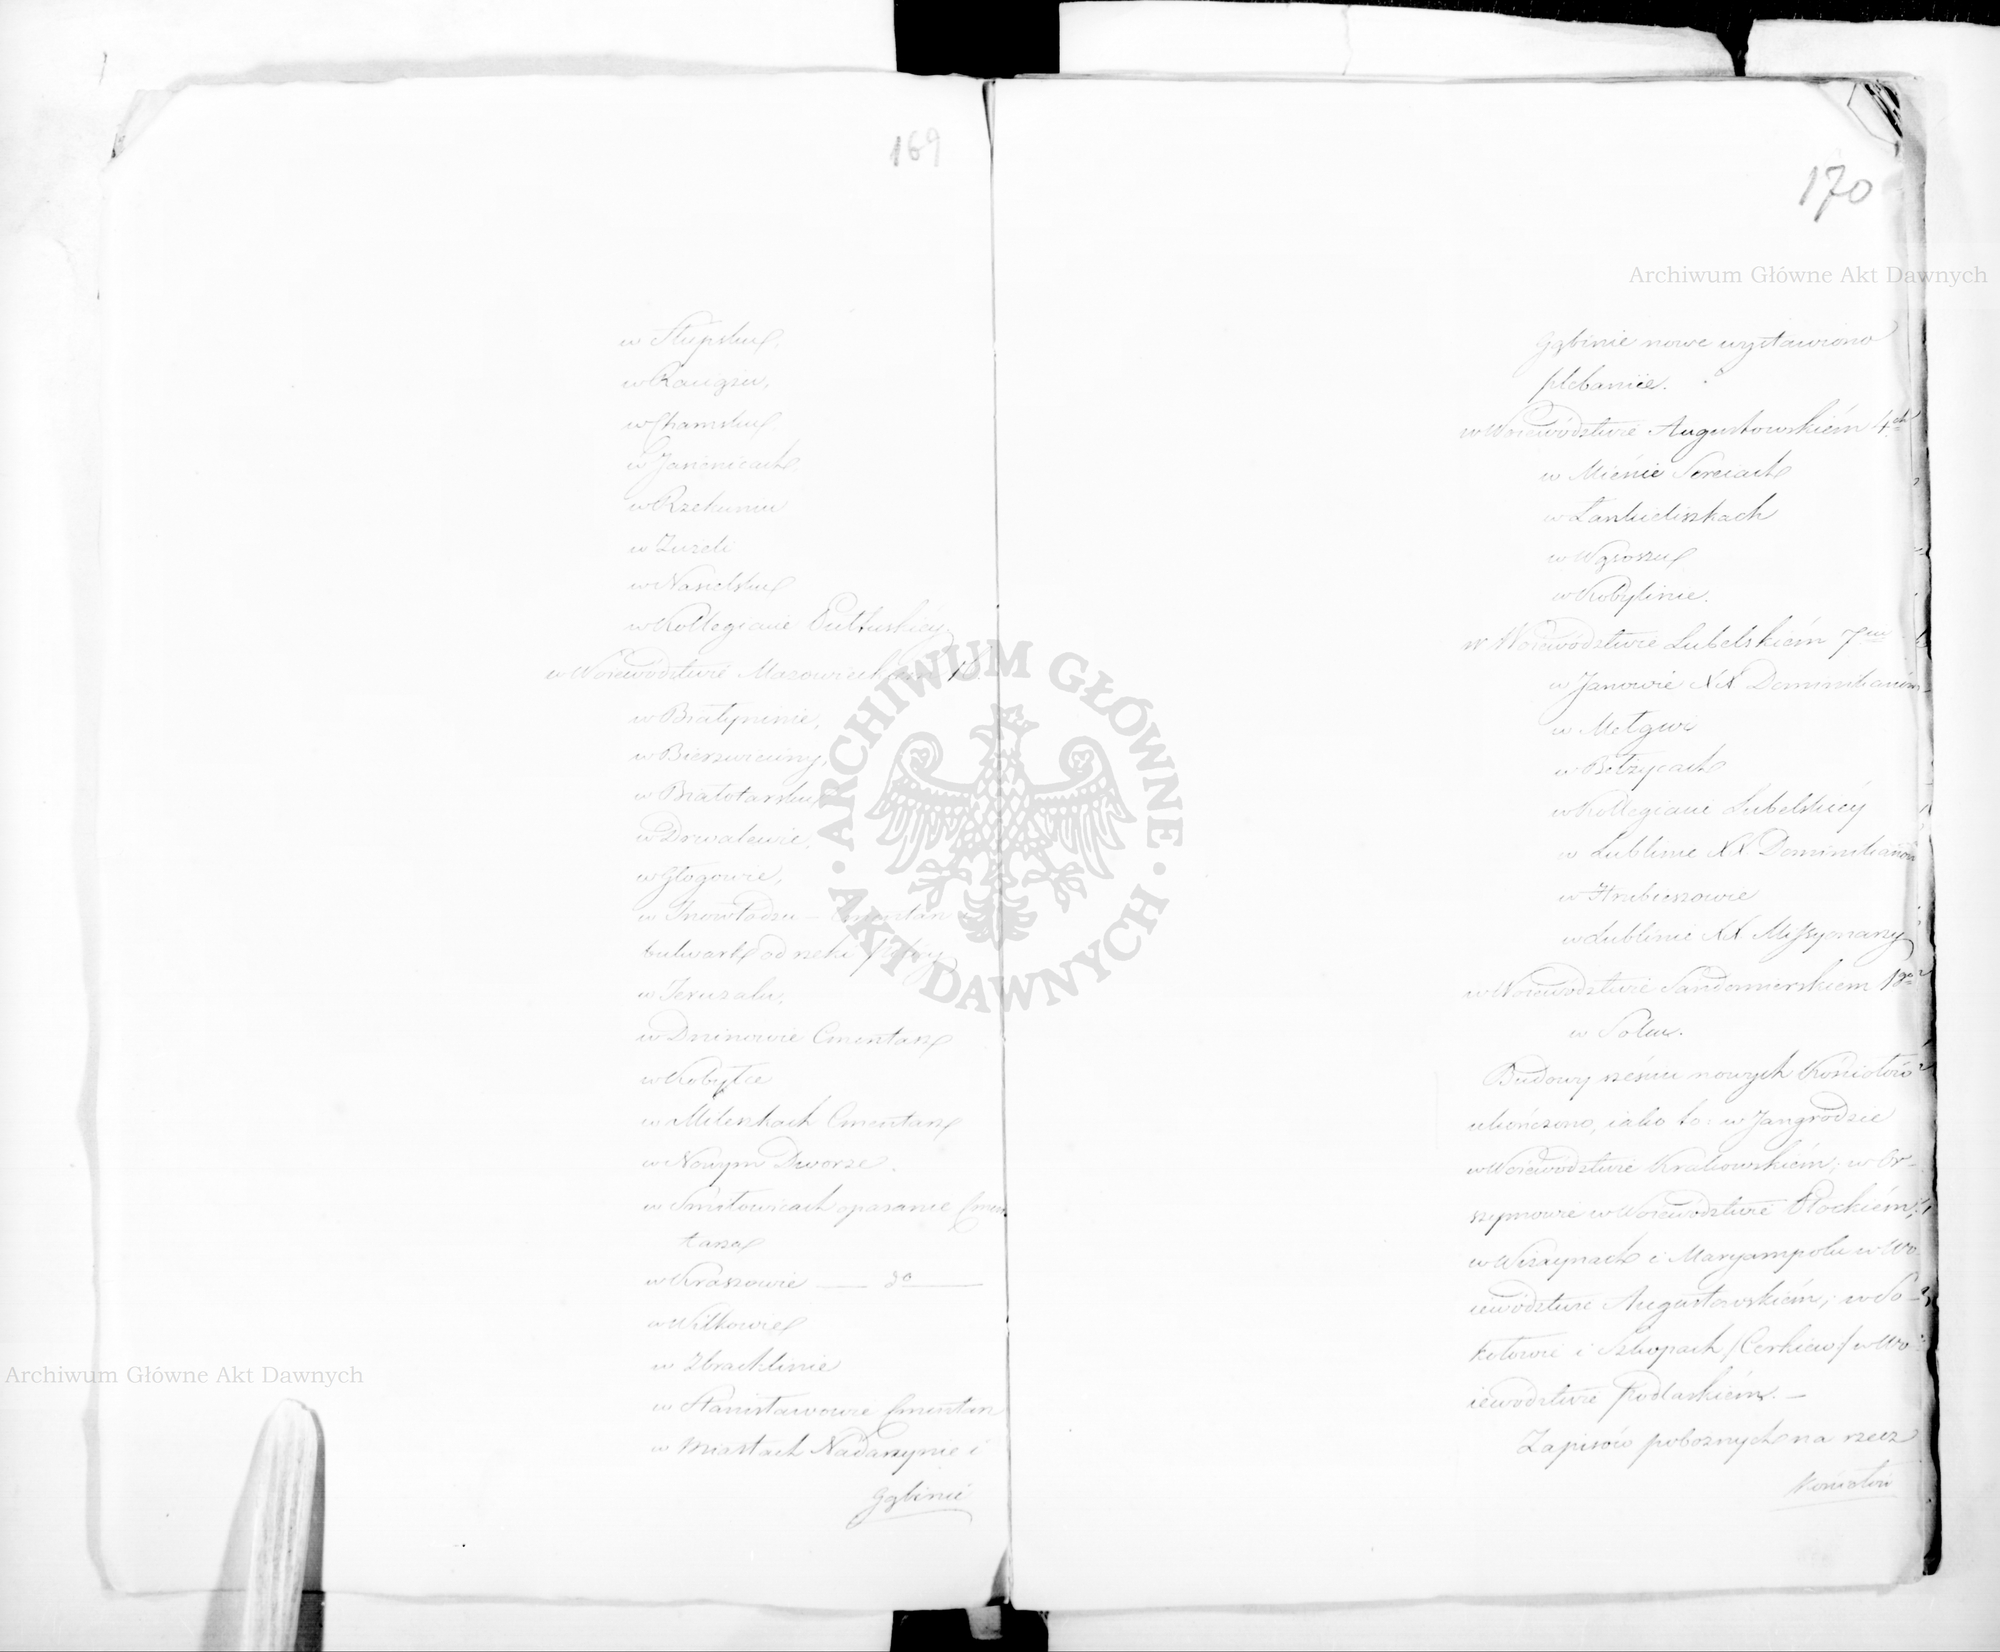 169
w Słupsku,
w Raciążu,
w Chamsku
w Jasienicach
w Rzekuniu
w Zuzeli
w Nasielsku
w Kollegiacie Pułtuskiéy
w Woiewództwie Mazowieckiém 16
w Białyninie,
w Bierzwienny,
w Białotarsku
w Drwalewie,
w Głogowie,
w Inowłodzu – Cmentarz
bulwark od rzeki Pilicy
w Jeruzalu,
w Dninowie Cmentarz
w Kobyłce
w Mileszkach Cmentarz
w Nowym Dworze.
w Śmiłowicach opasanie Cmen
tarza
w Kraszowie — do —
w Wilkowie
w Zbrachlinie
w Stanisławowie Cmentarz
w Miastach Nadarzynie i
Gąbinie
170
Gąbinie nowe wystawiono
plebaniie.
w Woiewództwie Augustowskiém 4ch
w Sereiach
w Łankieliszkach
w Wąsoszu
w Kobylinie.
w Woiewództwie Lubelskiém 7miu
w Janowie XX Dominikanów
w Mełgwi
w Bełzycach
w Kollegiacie Lubelskiéy
w Lublinie XX Dominikanów
w Hrubieszowie
w Lublinie XX Missyonarzy
w Woiewództwie Sandomierskiem 1go
w Solcu.
Budowy sześciu nowych Kościołów
ukończono, iako to: w Jangrodzie
w Woiewództwie Krakowskiém; w Or-
szymowie w Woiewództwie Płockiém;
w Wiżaynach i Maryampolu w Wo
iewództwie Augustowskiém; w So-
kołowie i Szkopach /Cerkiew/ w Wo
iewództwie Podlaskiém. –
Zapisów pobożnych na rzecz
Kościołów
Archiwum Główne Akt Dawnych
Archiwum Główne Akt Dawnych
ARCHIWUM GŁÓWNE
AKT DAWNYCH